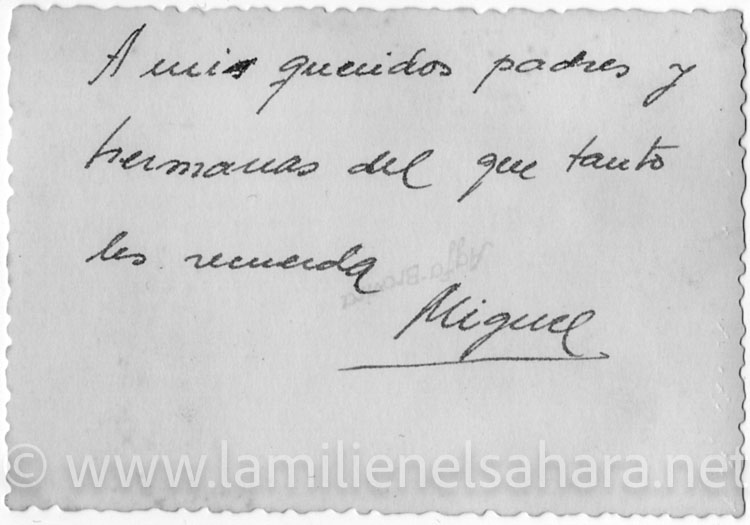 A mis queridos padres y
hermanas del que tanto
les recuerda
Miguel
© www.lamilienelsahara.net